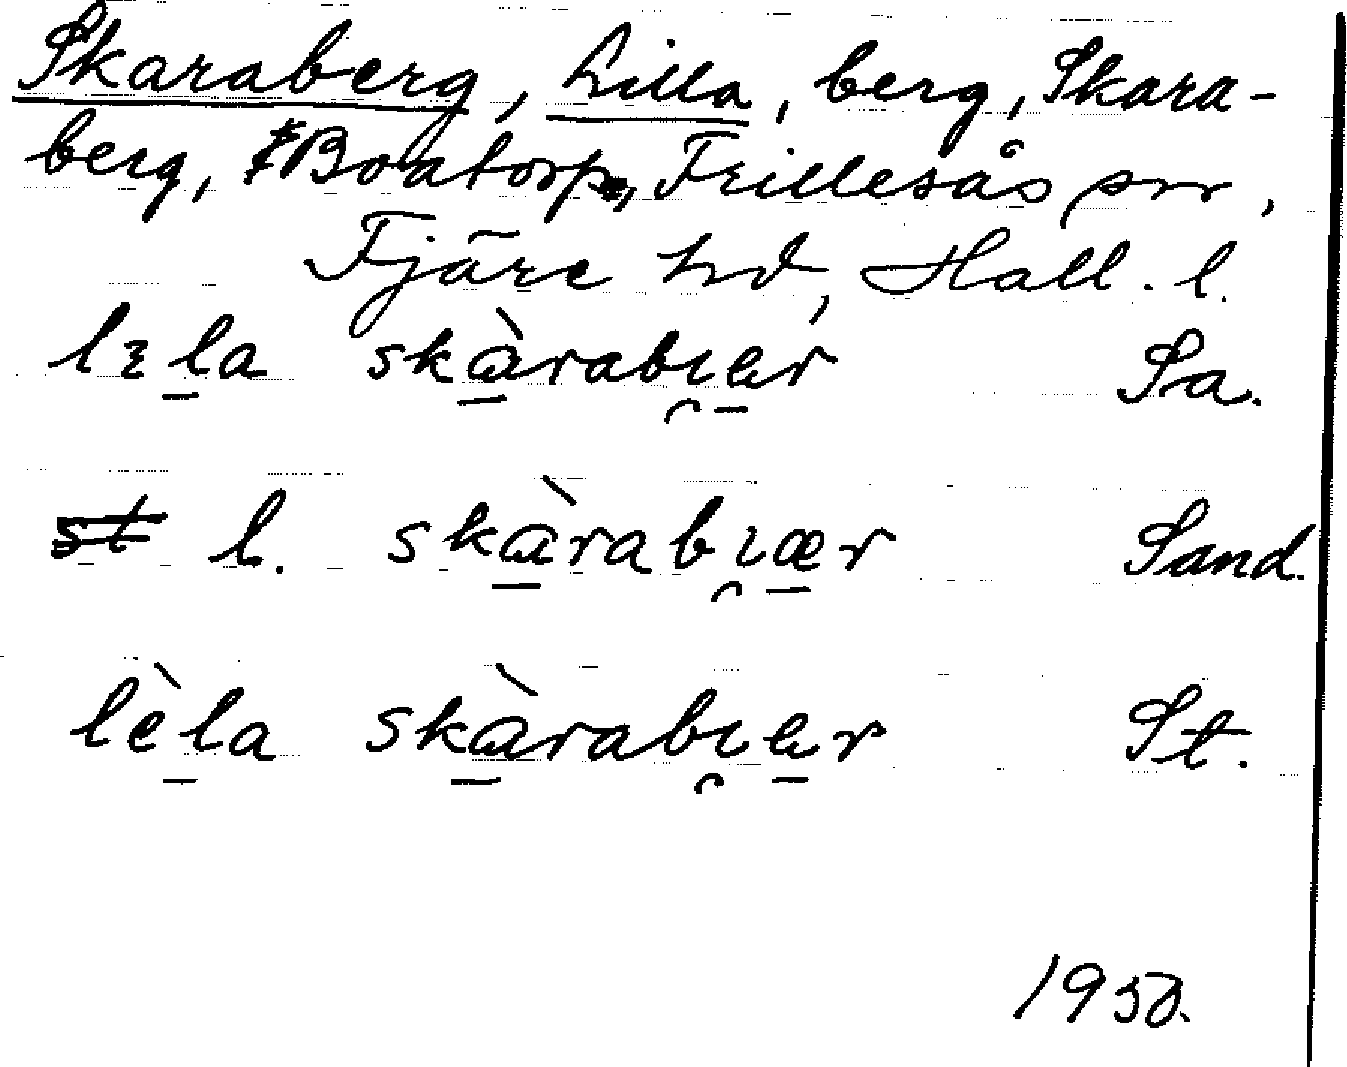 Skaraberg, Lilla, berg, Skara-
berg, Boatorp, Frillesås sn,
Fjäre hd, Hall. l.
lɛla skàrabıær Sa.
st l. skàrabıær Sand.
lèla skàrabıær St.